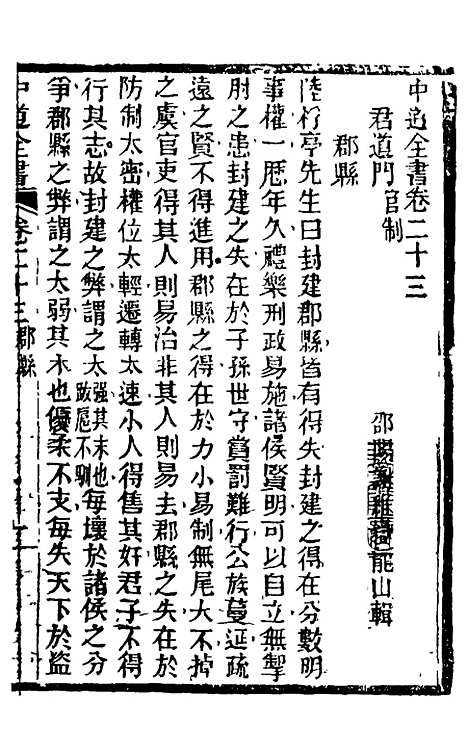 中道全書卷二十三
君道門官制
邵陽謝維岳龍山輯
郡縣
陸桴亭先生曰封建郡縣皆有得失封建之得在分數明
事權一歷年久禮樂刑政易施諸侯賢明可以自立無掣
肘之患封建之失在於子孫世守賞罰難行公族蔓延疏
遠之賢不得進用郡縣之得在於力小易制無尾大不掉
之虞官吏得其人則易治非其人則易去郡縣之失在於
防制太密權位太輕遷轉太速小人得售其奸君子不得
行其志故封建之弊謂之太強其末也跋扈不馴每壞於諸侯之分
爭郡縣之弊謂之太弱其末也優柔不支每失天下於盜
中道全書
卷二十三郡縣